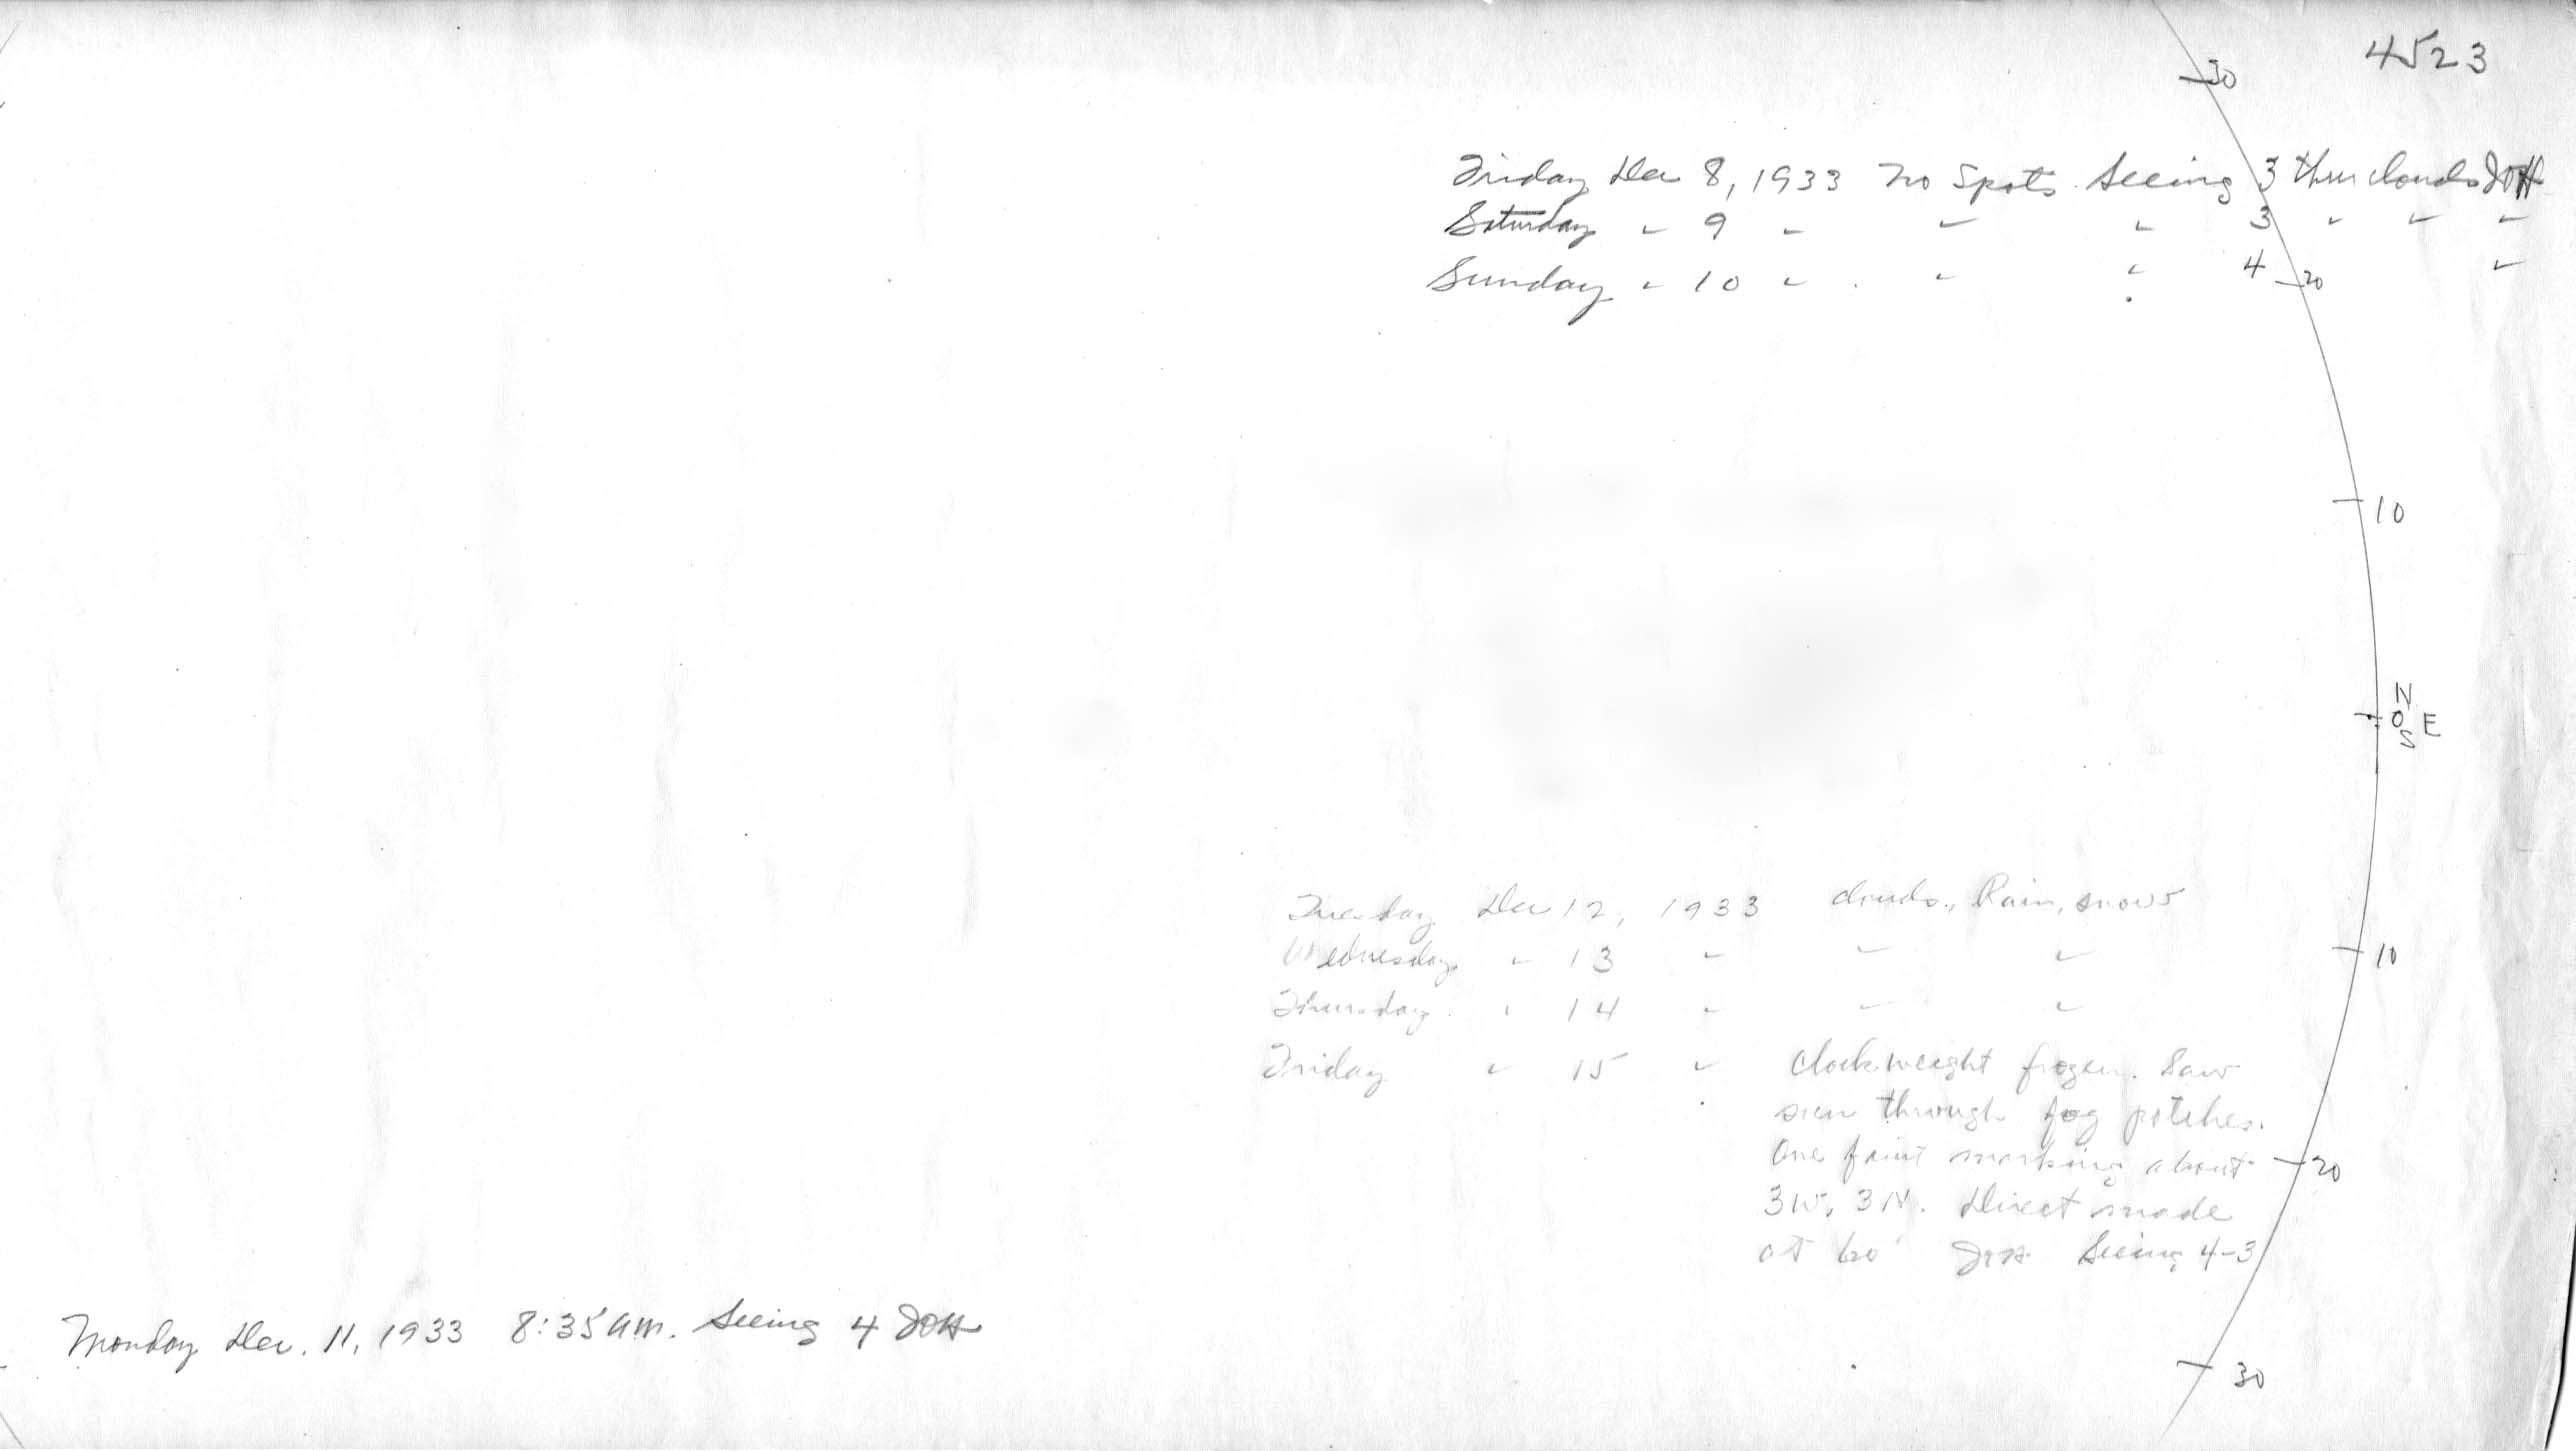 4523
30
Friday Dec 8, 1933 No Spots Seeing 3 thru clouds JOH
Saturday " 9 " " " 3 " " "
Sunday " 10 " " " 4 "
20
10
N
O E
S
Tuesday Dec 12, 1933 clouds, Rain, snow
Wednesday " 13 " " "
10
Thursday " 14 " " "
Friday " 15 " Clock weight frozen. Saw
sun through fog patches.
One faint marking about
20
3W, 3N. Direct made
at JOH Seeing 4-3
Monday Dec. 11, 1933 8:35 am. Seeing 4 JOH
30